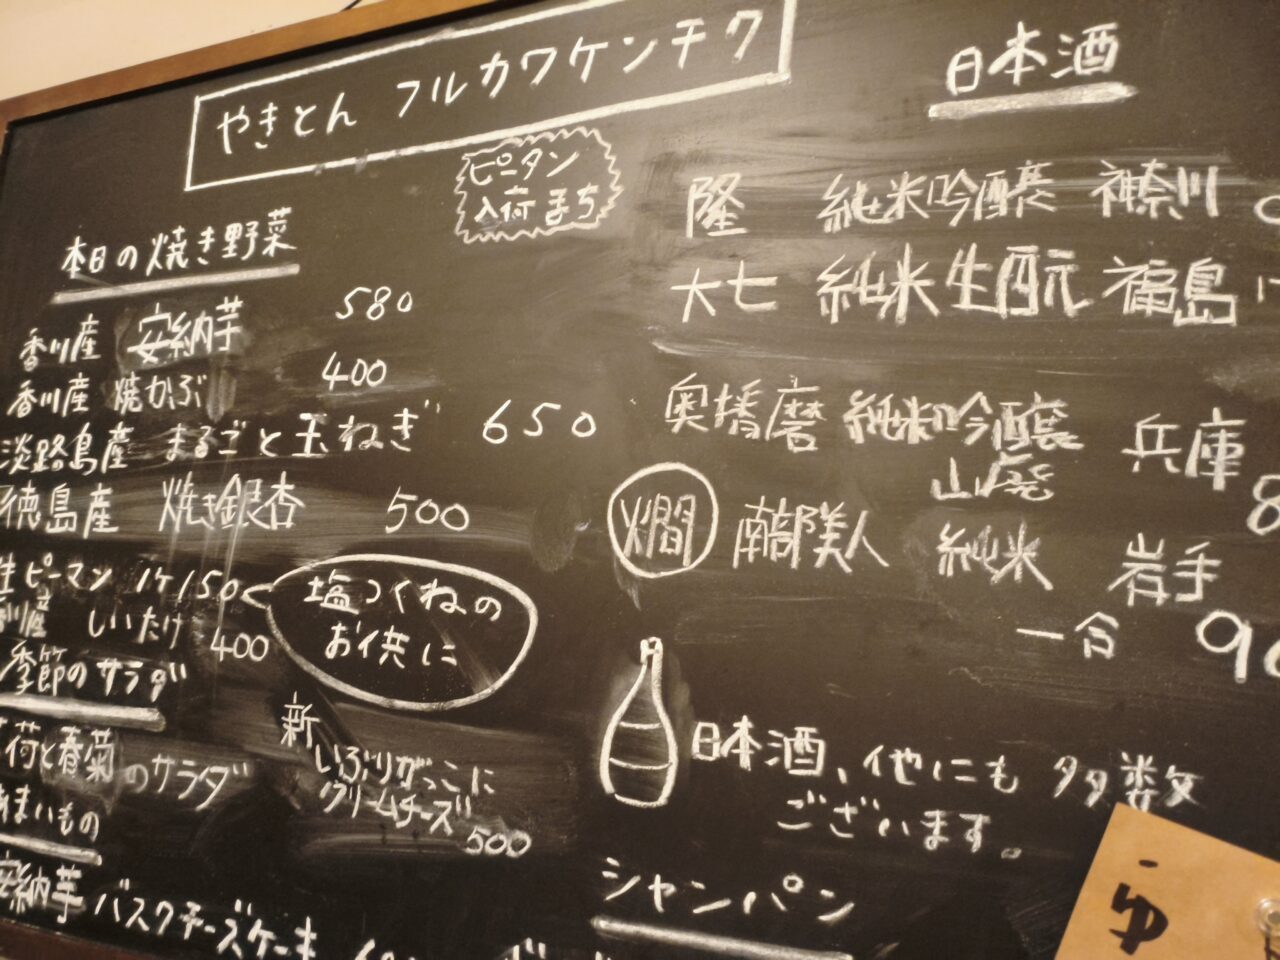 やきとん フルカワケンチク
ピータン
入荷まち
本日の焼き野菜
香川産 安納芋 580
香川産 焼かぶ 400
淡路島産 まるごと玉ねぎ 650
徳島産 焼き銀杏 500
生ピーマン 1ケ150
塩つくねの
お供に
香川産 しいたけ 400
季節のサラダ
荷と春菊のサラダ
新いぶりがっこに
クリームチーズ 500
あまいもの
安納芋 バスクチーズケーキ
日本酒
隆 純米吟醸 神奈川
大七 純米生酛 福島
奥播磨 純米吟醸 兵庫
山廃 8
燗 南部美人 純米 岩手
一合
日本酒、他にも多数
ございます。
シャンパン